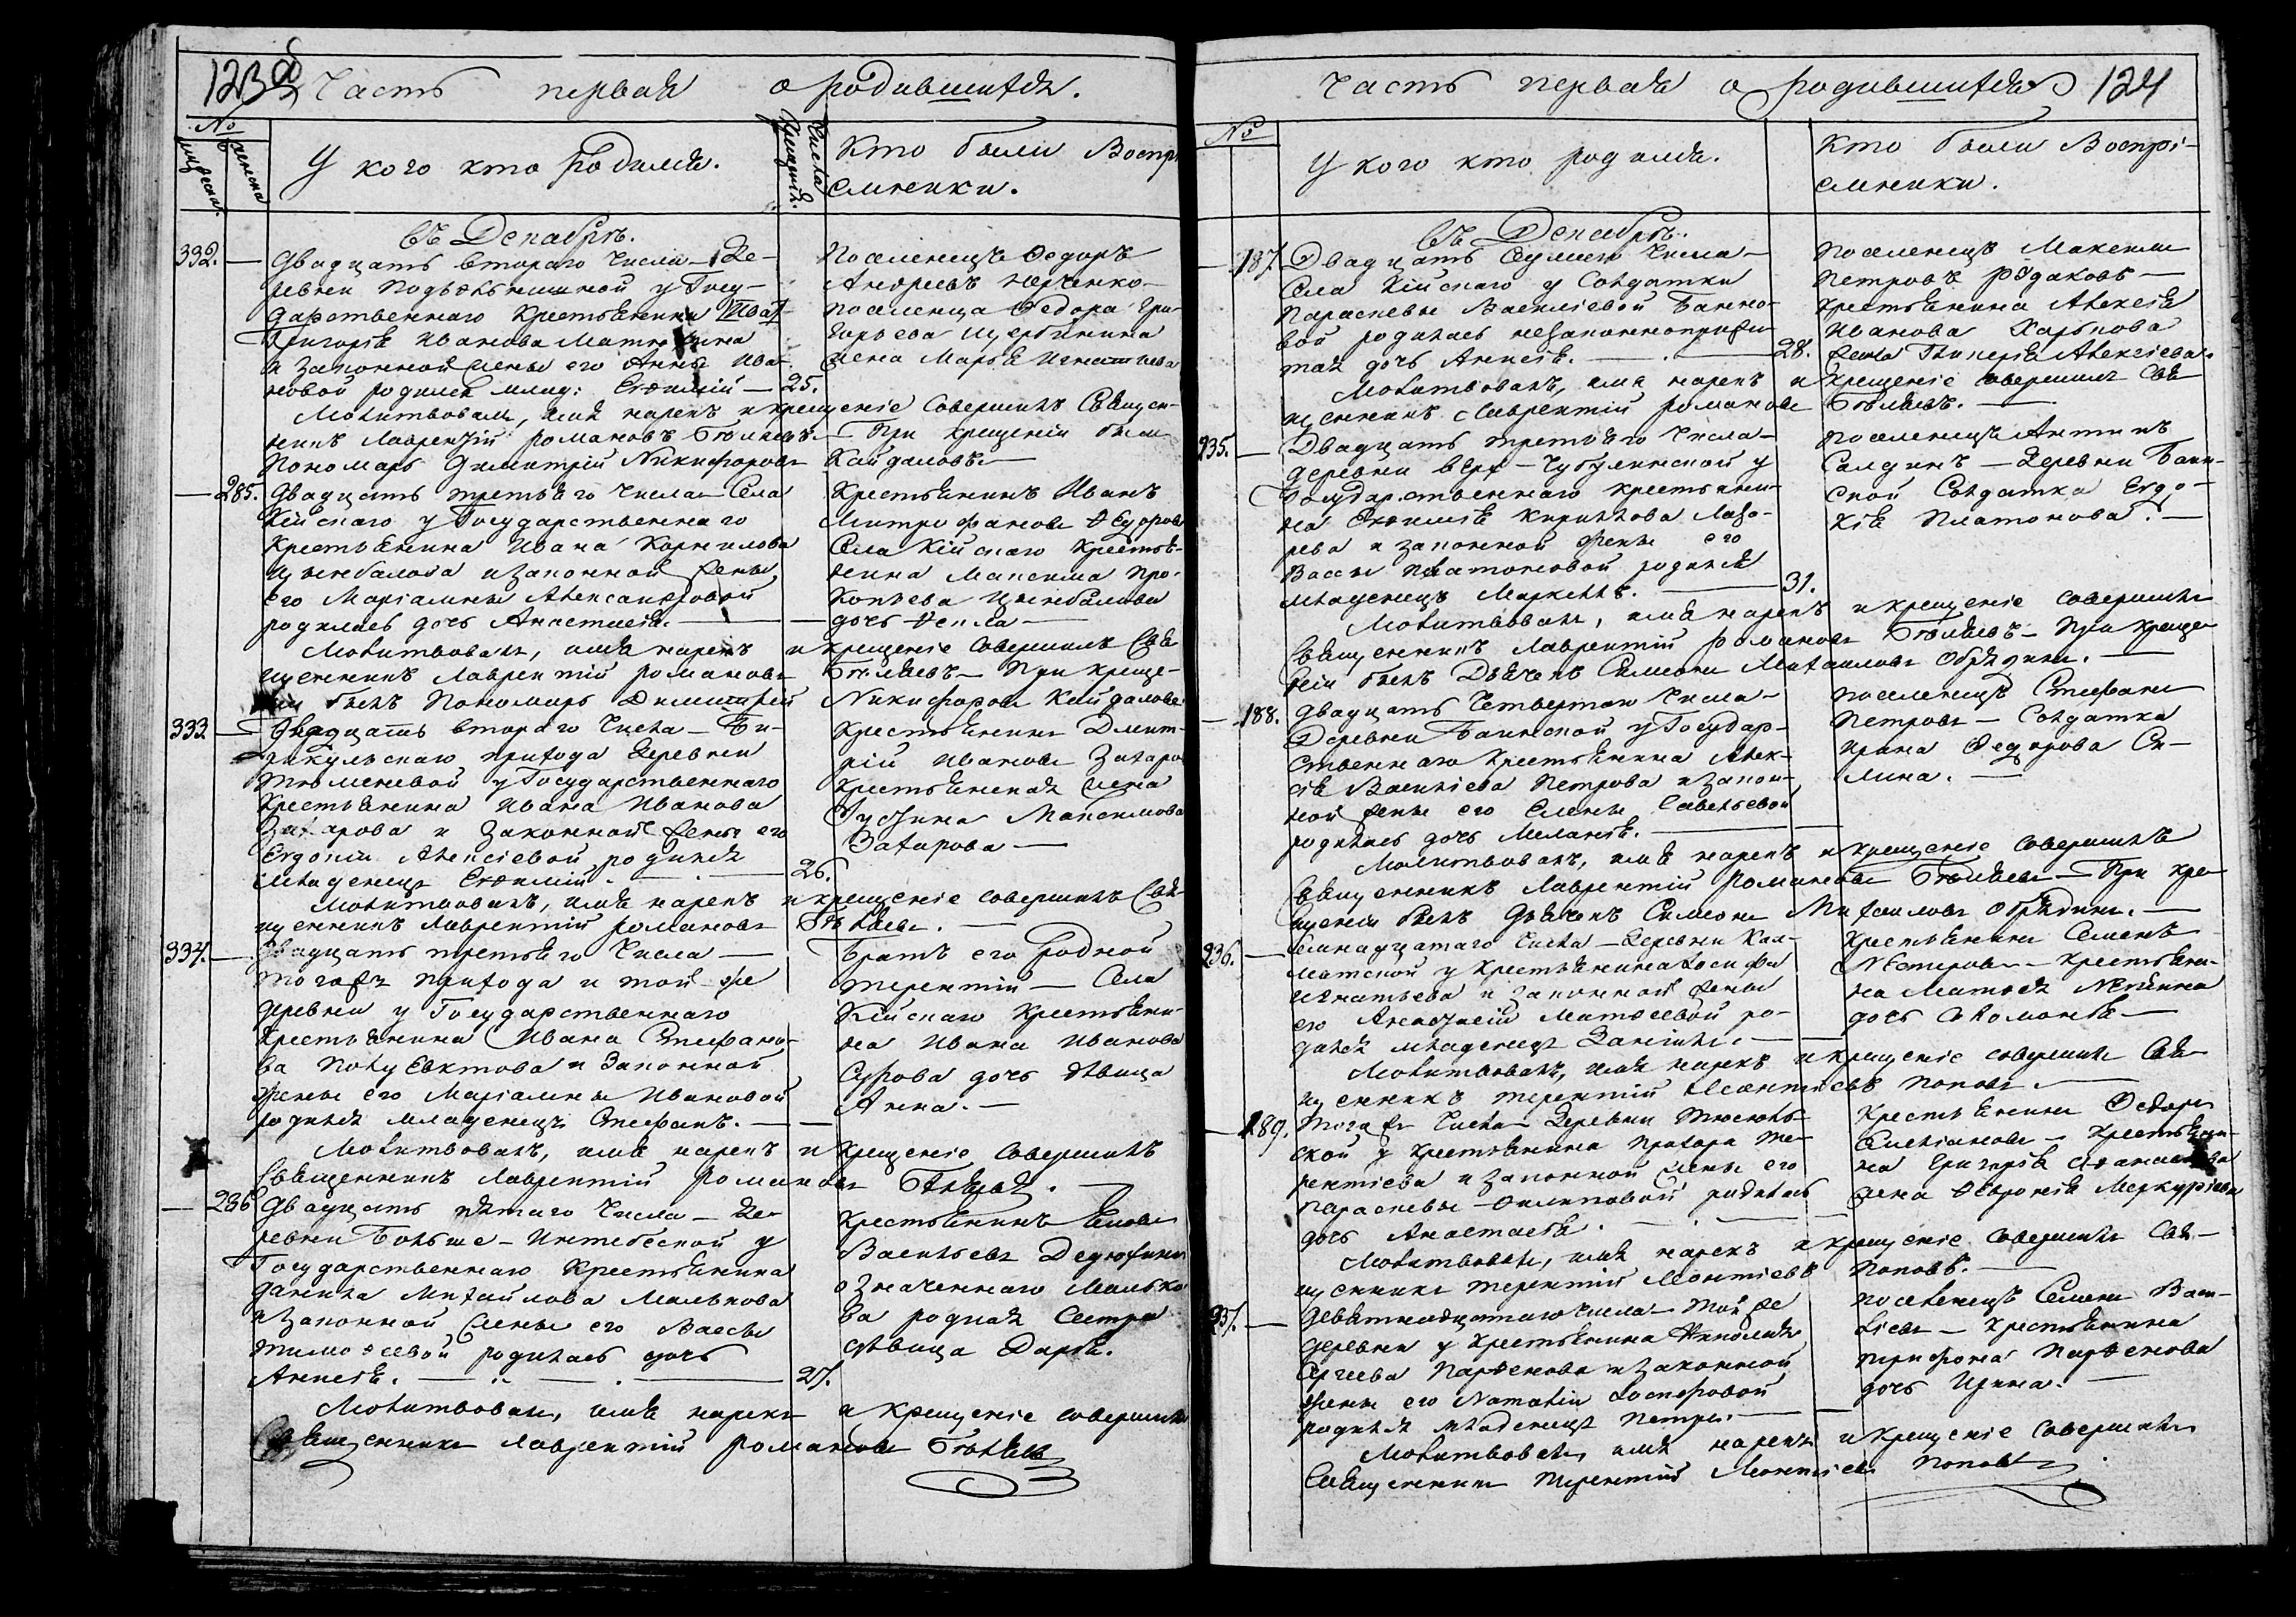 123 об
Часть первая о родившихся.
№
мужеска.
женска
У кого кто родился.
Числа крещенія.
Кто были Воспрі
емники.
въ Декабрѣ.
332. — Двадцать втораго числа — Де-
ревни у Госу-
дарственнаго Крестьянина
Григорія Иванова
и законной жены его Анны Ива-
новой родился млад: Евѳимій — 25.
Поселенецъ Ѳедоръ
Андреевъ Юрченко —
поселенца Ѳедора Гри-
горьева Щербинина
жена Марья Игнатьева
Молитвовалъ, имя нарекъ и крещеніе совершилъ Священ-
никъ Лаврентій Романовъ — При крещеніи былъ
Пономарь Димитрій Никифоровъ Кайдаловъ —
— 285. Двадцать третьяго числа — Села
Кійскаго у Государственнаго
Крестьянина Ивана Корнилова
Цынбалова и законной жены
его Маріамны Александровой
родилась дочь Анастасія. —
Крестьянинъ Иванъ
Митрофановъ Ѳедоровъ
Села Кійскаго Крестья-
нина Максима Про-
копьева Цынбалова
дочь Ѳекла —
Молитвовалъ, имя нарекъ и крещеніе совершилъ Свя-
щенникъ Лаврентій Романовъ — При креще-
ніи былъ Пономарь Димитрій Никифоровъ Кайдаловъ
333. — Двадцать втораго числа — Ти-
хаго прихода Деревни
Тюменевой у Государственнаго
Крестьянина Ивана Иванова
Захарова и законной жены его
Евдокіи Алексіевой родился
младенецъ Евѳимій. — 26.
Крестьянинъ Дмит-
рій Ивановъ Захаро
Крестьянская жена
Іустина Максимова
Захарова —
Молитвовалъ, имя нарекъ и крещеніе совершилъ Свя-
щенникъ Лаврентій Романовъ
334. — Двадцать третьяго числа —
тогожъ прихода и той же
деревни у Государственнаго
Крестьянина Ивана Стефано-
ва Полуектова и законной
жены его Маріамны Ивановой
родился младенецъ Стефанъ. —
Братъ его родной
Терентій — Села
Кійскаго Крестьяни-
на Ивана Иванова
Сурова дочь дѣвица
Анна. —
Молитвовалъ, имя нарекъ и крещеніе совершилъ
Священникъ Лаврентій Романовъ
— 286. Двадцать пятаго числа — Де-
ревни Больше-Интебеской у
Государственнаго Крестьянина
Данила Михайлова Малькова
и законной жены его Вассы
Тимоѳеевой родилась дочь
Анисія. — 27.
Крестьянинъ
Васильевъ Дедюхинъ
означеннаго Малько
ва родная сестра
дѣвица Дарья.
Молитвовалъ, имя нарекъ и крещеніе совершилъ
Священникъ Лаврентій Романовъ
Часть первая о родившихся 124
№
У кого кто родился.
Кто были Воспрі-
емники.
въ Декабрѣ.
— 187. Двадцать седьмаго числа —
Села Кійскаго у Солдатки
Параскевы Василіевой Банно-
вой родилась незаконноприжи-
тая дочь Анисія. — 28.
Поселенецъ Максимъ
Петровъ Рудаковъ —
Крестьянина Алексія
Иванова Харькова
жена Гликерія Алексіева.
Молитвовалъ, имя нарекъ и крещеніе совершилъ Свя-
щенникъ Лаврентій Романовъ
235. — Двадцать третьяго числа —
деревни Верх-Чубулинской у
Государственнаго крестьяни-
на Евѳимія Кириллова Лаза-
рева и законной жены его
Вассы Платоновой родился
младенецъ Маркеллъ. — 31.
Поселенецъ Антипъ
Салдинъ — Деревни Баин-
ской Солдатка Евдо-
кія Платонова. —
Молитвовалъ, имя нарекъ и крещеніе совершилъ
Священникъ Лаврентій Романовъ — При креще-
ніи былъ Дьячекъ Симеонъ Михаиловъ Обрядинъ. —
— 188. Двадцать четвертаго числа —
Деревни Баинской у Государ-
ственнаго Крестьянина Алек-
сія Васильева Петрова и закон-
ной жены его Елены Савельевой
родилась дочь Меланія. —
Поселенецъ Стефанъ
Петровъ — Солдатка
Ирина Ѳедорова Си-
лина. —
Молитвовалъ, имя нарекъ и крещеніе совершилъ
Священникъ Лаврентій Романовъ — При кре-
щеніи былъ Дьячекъ Симеонъ Михаиловъ Обрядинъ. —
236. — числа — Деревни
у Крестьянина Іосифа
Игнатьева и законной жены
его Анастасіи Матѳеевой ро-
дился младенецъ Даніилъ. —
Крестьянинъ Семенъ
Нестеровъ — Крестьяни-
на Матѳея
дочь Соломонія —
Молитвовалъ, имя нарекъ и крещеніе совершилъ Свя-
щенникъ Терентій Леонтіевъ Поповъ. —
— 189. Тогожъ числа — Деревни Тюсюль-
ской у Крестьянина Прохора Те-
рентіева и законной жены его
Параскевы Филипповой родилась
дочь Анастасія. —
Крестьянинъ Ѳедоръ
— Крестьяни-
на Григорія Аѳанасьева
жена Ѳевронія Меркурьева
Молитвовалъ, имя нарекъ и крещеніе совершилъ Свя-
щенникъ Терентій Леонтіевъ Поповъ. —
237. — Девятнадцатаго числа — той же
деревни у Крестьянина Николая
Сергеева Парѳенова и законной
жены его Наталіи Іосифовой
родился младенецъ Петръ. —
Поселенецъ Семенъ Васи-
ліевъ — Крестьянина
Трифона Парѳенова
дочь Ирина. —
Молитвовалъ, имя нарекъ и крещеніе совершилъ
Священникъ Терентій Леонтіевъ Поповъ